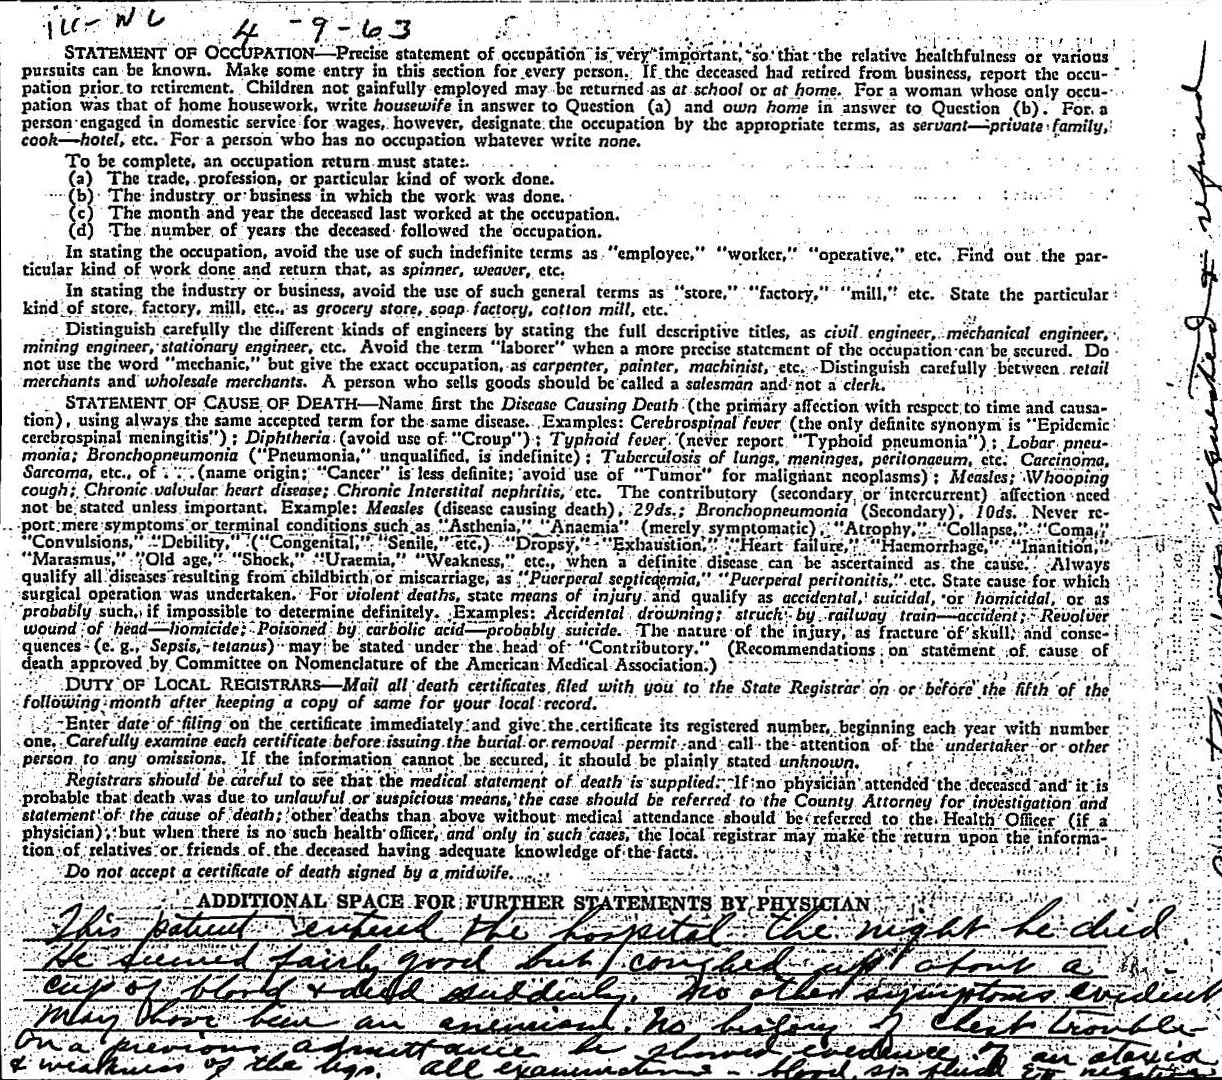 4-9-63
STATEMENT OF OCCUPATION—Precise statement of occupation is very important, so that the relative healthfulness or various
pursuits can be known. Make some entry in this section for every person. If the deceased had retired from business, report the occu-
pation prior to retirement. Children not gainfully employed may be returned as at school or at home. For a woman whose only occu-
pation was that of home housework, write housewife in answer to Question (a) and own home in answer to Question (b). For a
person engaged in domestic service for wages, however, designate the occupation by the appropriate terms, as servant—private family,
cook—hotel, etc. For a person who has no occupation whatever write none.
To be complete, an occupation return must state:
(a) The trade, profession, or particular kind of work done.
(b) The industry or business in which the work was done.
(c) The month and year the deceased last worked at the occupation.
(d) The number of years the deceased followed the occupation.
In stating the occupation, avoid the use of such indefinite terms as "employee," "worker," "operative," etc. Find out the par-
ticular kind of work done and return that, as spinner, weaver, etc.
In stating the industry or business, avoid the use of such general terms as "store," "factory," "mill," etc. State the particular
kind of store, factory, mill, etc., as grocery store, soap factory, cotton mill, etc.
Distinguish carefully the different kinds of engineers by stating the full descriptive titles, as civil engineer, mechanical engineer,
mining engineer, stationary engineer, etc. Avoid the term "laborer" when a more precise statement of the occupation can be secured. Do
not use the word "mechanic," but give the exact occupation, as carpenter, painter, machinist, etc. Distinguish carefully between retail
merchants and wholesale merchants. A person who sells goods should be called a salesman and not a clerk.
STATEMENT OF CAUSE OF DEATH—Name first the Disease Causing Death (the primary affection with respect to time and causa-
tion), using always the same accepted term for the same disease. Examples: Cerebrospinal fever (the only definite synonym is "Epidemic
cerebrospinal meningitis"); Diphtheria (avoid use of "Croup"); Typhoid fever (never report "Typhoid pneumonia"); Lobar pneu-
monia; Bronchopneumonia ("Pneumonia," unqualified, is indefinite); Tuberculosis of lungs, meninges, peritonaeum, etc. Carcinoma,
Sarcoma, etc., of . . . (name origin; "Cancer" is less definite; avoid use of "Tumor" for malignant neoplasms); Measles; Whooping
cough; Chronic valvular heart disease; Chronic Interstital nephritis, etc. The contributory (secondary or intercurrent) affection need
not be stated unless important. Example: Measles (disease causing death), 29ds.; Bronchopneumonia (Secondary), 10ds. Never re-
port mere symptoms or terminal conditions such as "Asthenia," "Anaemia" (merely symptomatic), "Atrophy," "Collapse," "Coma,"
"Convulsions," "Debility," ("Congenital," "Senile," etc.) "Dropsy," "Exhaustion," "Heart failure," "Haemorrhage," "Inanition,"
"Marasmus," "Old age," "Shock," "Uraemia," "Weakness," etc., when a definite disease can be ascertained as the cause. Always
qualify all diseases resulting from childbirth or miscarriage, as "Puerperal septicaemia," "Puerperal peritonitis," etc. State cause for which
surgical operation was undertaken. For violent deaths, state means of injury and qualify as accidental, suicidal, or homicidal, or as
probably such, if impossible to determine definitely. Examples: Accidental drowning; struck by railway train—accident; Revolver
wound of head—homicide; Poisoned by carbolic acid—probably suicide. The nature of the injury, as fracture of skull, and conse-
quences (e. g., Sepsis, tetanus) may be stated under the head of "Contributory." (Recommendations on statement of cause of
death approved by Committee on Nomenclature of the American Medical Association.)
DUTY OF LOCAL REGISTRARS—Mail all death certificates filed with you to the State Registrar on or before the fifth of the
following month after keeping a copy of same for your local record.
Enter date of filing on the certificate immediately and give the certificate its registered number, beginning each year with number
one. Carefully examine each certificate before issuing the burial or removal permit and call the attention of the undertaker or other
person to any omissions. If the information cannot be secured, it should be plainly stated unknown.
Registrars should be careful to see that the medical statement of death is supplied. If no physician attended the deceased and it is
probable that death was due to unlawful or suspicious means, the case should be referred to the County Attorney for investigation and
statement of the cause of death; other deaths than above without medical attendance should be referred to the Health Officer (if a
physician), but when there is no such health officer, and only in such cases, the local registrar may make the return upon the informa-
tion of relatives or friends of the deceased having adequate knowledge of the facts.
Do not accept a certificate of death signed by a midwife.
ADDITIONAL SPACE FOR FURTHER STATEMENTS BY PHYSICIAN
This patient entered the hospital the night he died
He seemed fairly good but coughed up about a
cup of blood & died suddenly. No other symptoms evident
May have been an aneurism. No history of chest trouble
On a previous admittance he showed evidence of an ataxia
& weakness of the legs. All examinations - blood, sp fluid
requested & refused